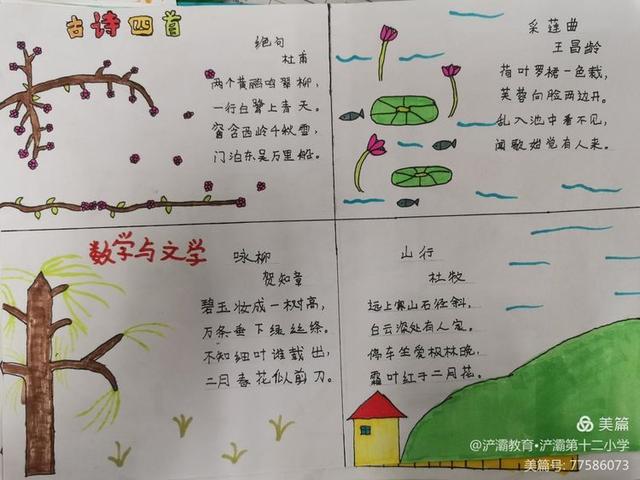 古诗四首
绝句
杜甫
两个黄鹂鸣翠柳，
一行白鹭上青天。
窗含西岭千秋雪，
门泊东吴万里船。
采莲曲
王昌龄
荷叶罗裙一色裁，
芙蓉向脸两边开。
乱入池中看不见，
闻歌始觉有人来。
数学与文学
咏柳
贺知章
碧玉妆成一树高，
万条垂下绿丝绦。
不知细叶谁裁出，
二月春花似剪刀。
山行
杜牧
远上寒山石径斜，
白云深处有人家。
停车坐爱枫林晚，
霜叶红于二月花。
美篇
@浐灞教育·浐灞第十二小学
美篇号: 77586073